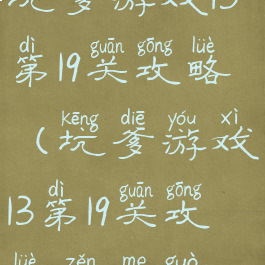 坑爹游戏13
dì guān gōng lüè
第19关攻略
kēng diē yóu xì
(坑爹游戏
dì guān gōng
13第19关攻
lüè zěn me guò